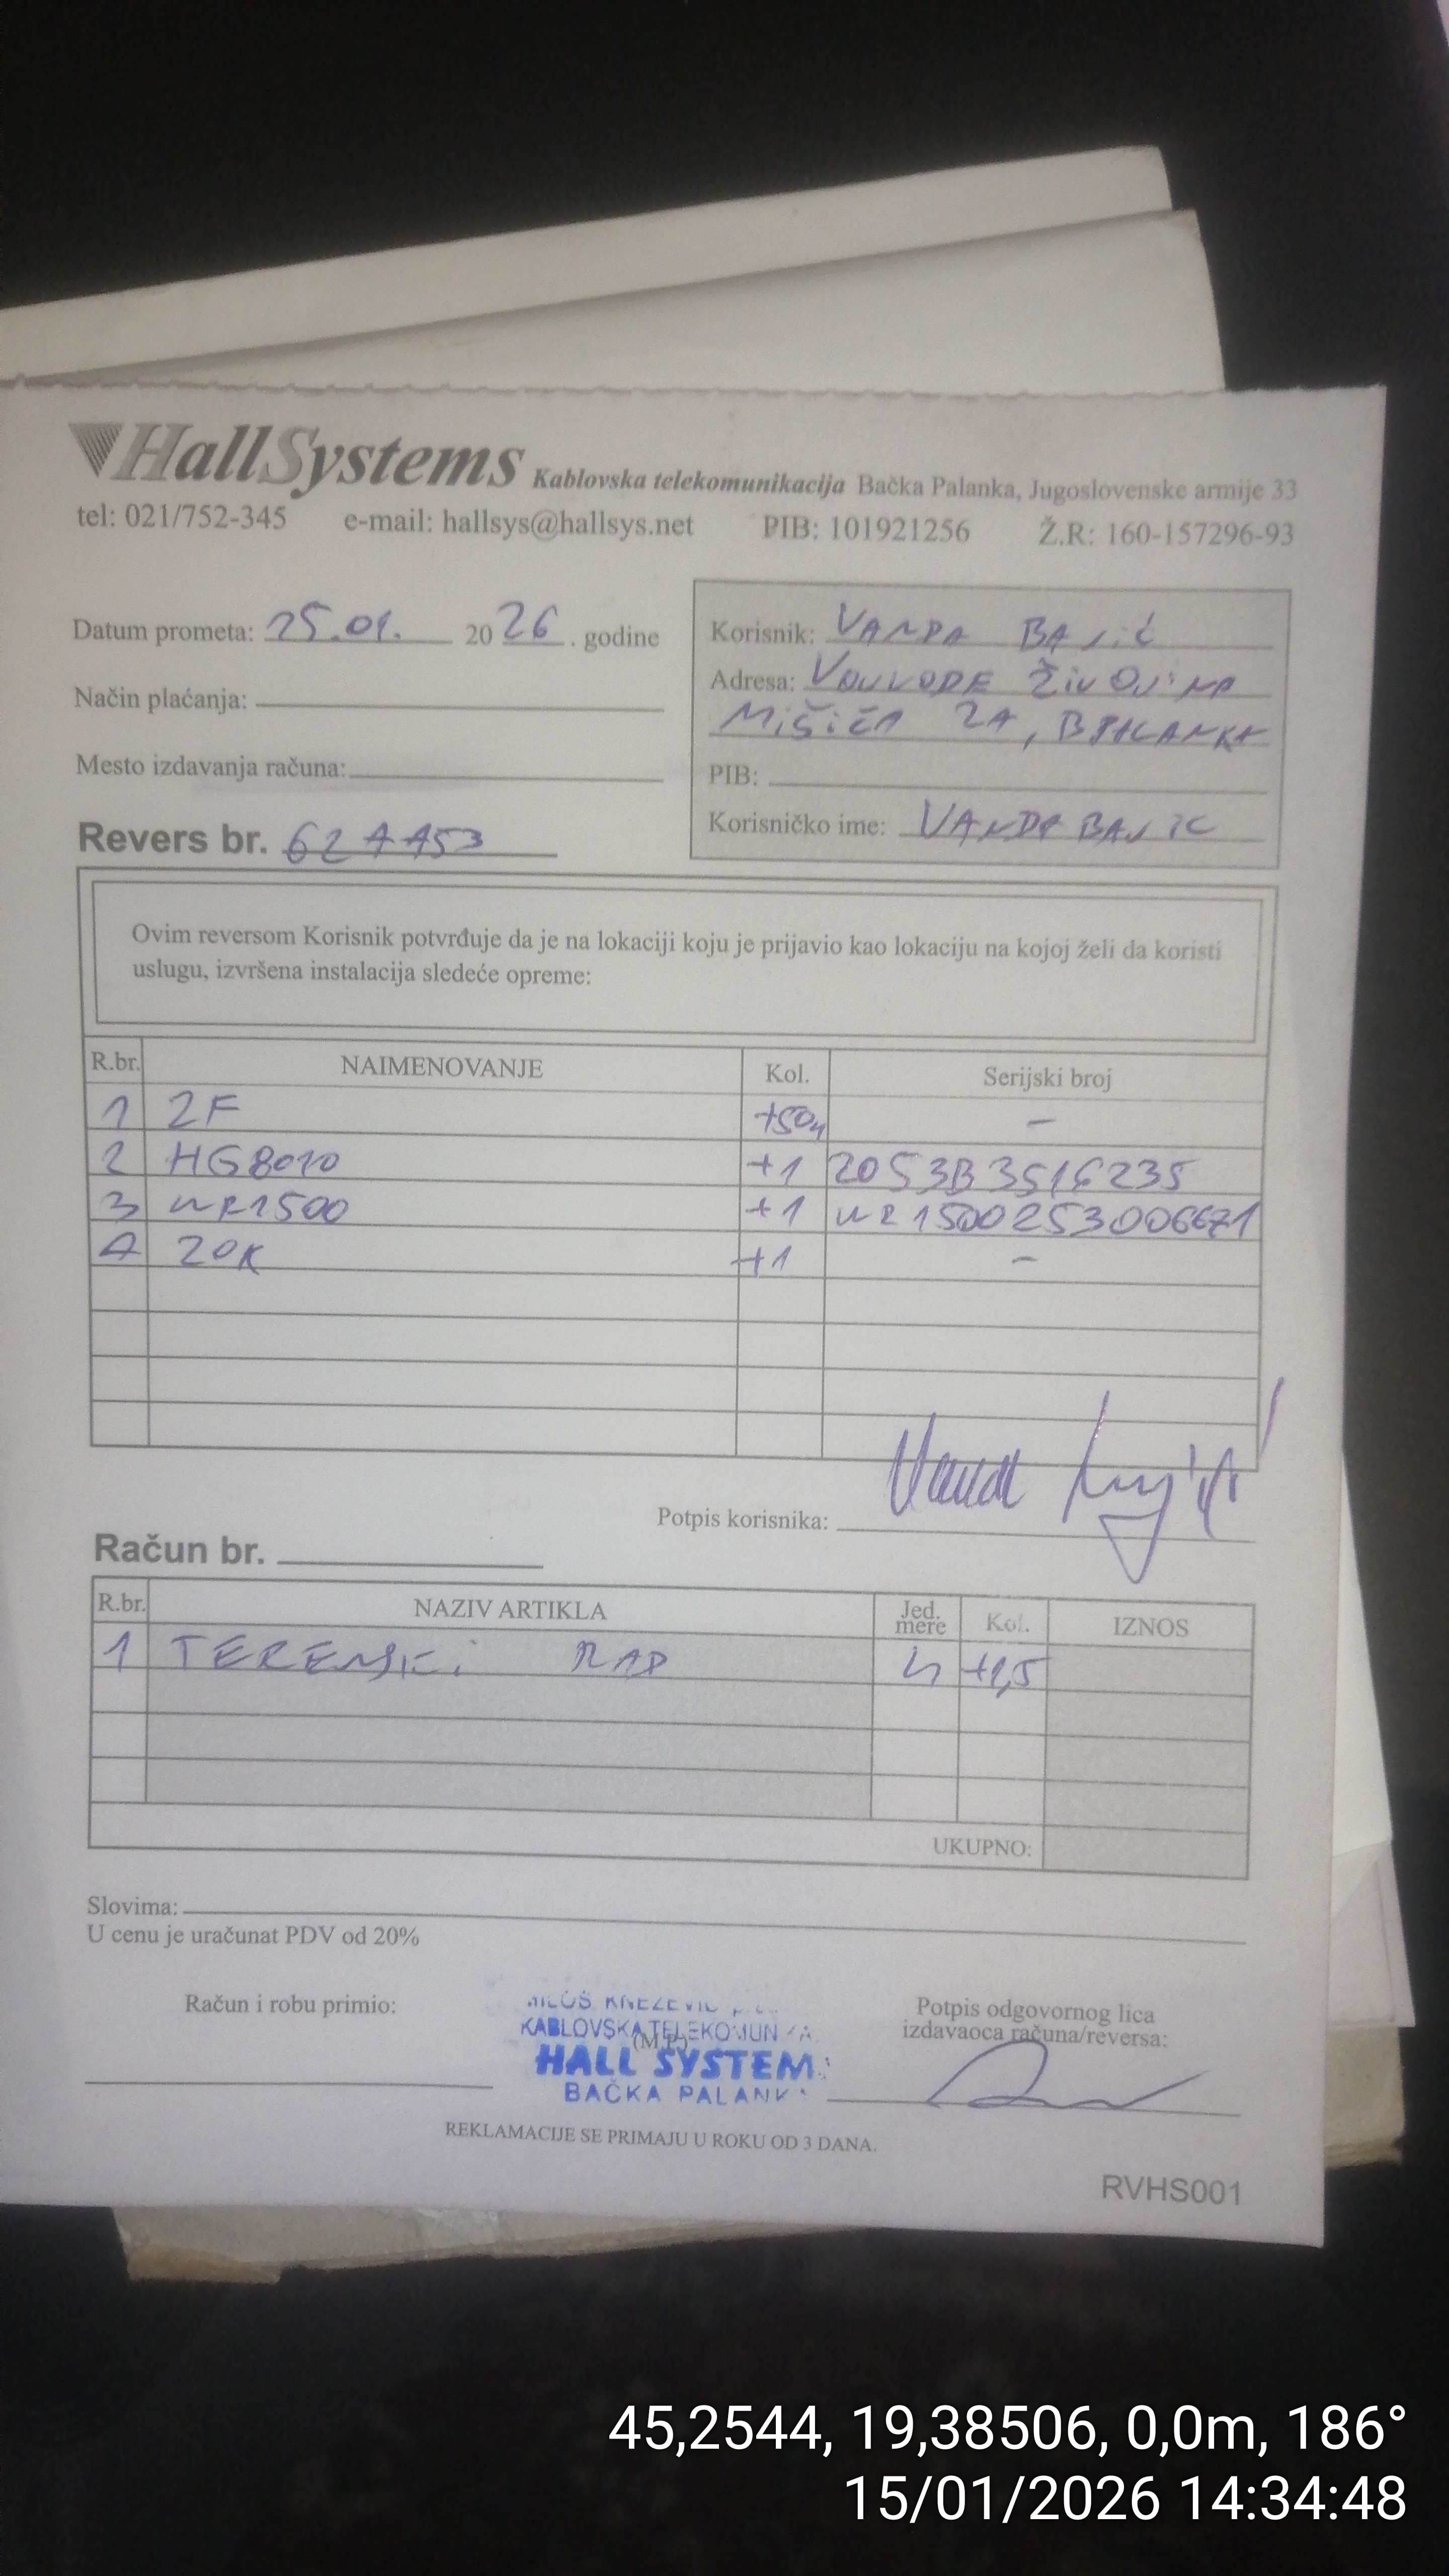 HallSystems Kablovska telekomunikacija Bačka Palanka, Jugoslovenske armije 33
tel: 021/752-345 e-mail: hallsys@hallsys.net PIB: 101921256 Ž.R: 160-157296-93
Datum prometa: 15.01. 2026. godine
Način plaćanja:
Mesto izdavanja računa:
Revers br. 624453
Korisnik: VANDA BAJIĆ
Adresa: VOJVODE ŽIVOJINA
MIŠIĆA 2A, B PALANKA
PIB:
Korisničko ime: VANDA BAJIC
Ovim reversom Korisnik potvrđuje da je na lokaciji koju je prijavio kao lokaciju na kojoj želi da koristi
uslugu, izvršena instalacija sledeće opreme:
R.br. NAIMENOVANJE Kol. Serijski broj
1 2F +50m -
2 HG8010 +1 2053B3516235
3 WR1500 +1 WR1500253006671
4 ZOK +1 -
Potpis korisnika:
Račun br.
R.br. NAZIV ARTIKLA Jed. mere Kol. IZNOS
1 TERENSKi RAD h +1,5
UKUPNO:
Slovima:
U cenu je uračunat PDV od 20%
Račun i robu primio:
MILOŠ KNEŽEVIĆ
KABLOVSKA TELEKOMUN
(M.P.)
HALL SYSTEM
BAČKA PALANK
Potpis odgovornog lica
izdavaoca računa/reversa:
REKLAMACIJE SE PRIMAJU U ROKU OD 3 DANA.
RVHS001
45,2544, 19,38506, 0,0m, 186°
15/01/2026 14:34:48